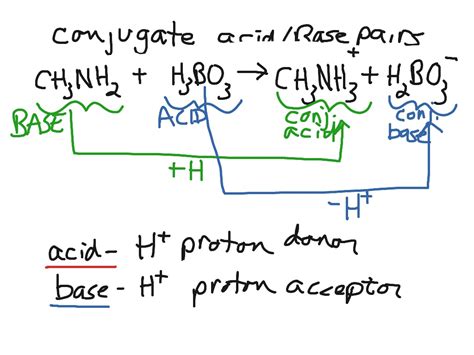 conjugate acid/Base pairs
CH₃NH₂ + H₃BO₃ → CH₃NH₃⁺ + H₂BO₃⁻
BASE ACID conj. acid conj. base
+H -H⁺
acid - H⁺ proton donor
base - H⁺ proton acceptor